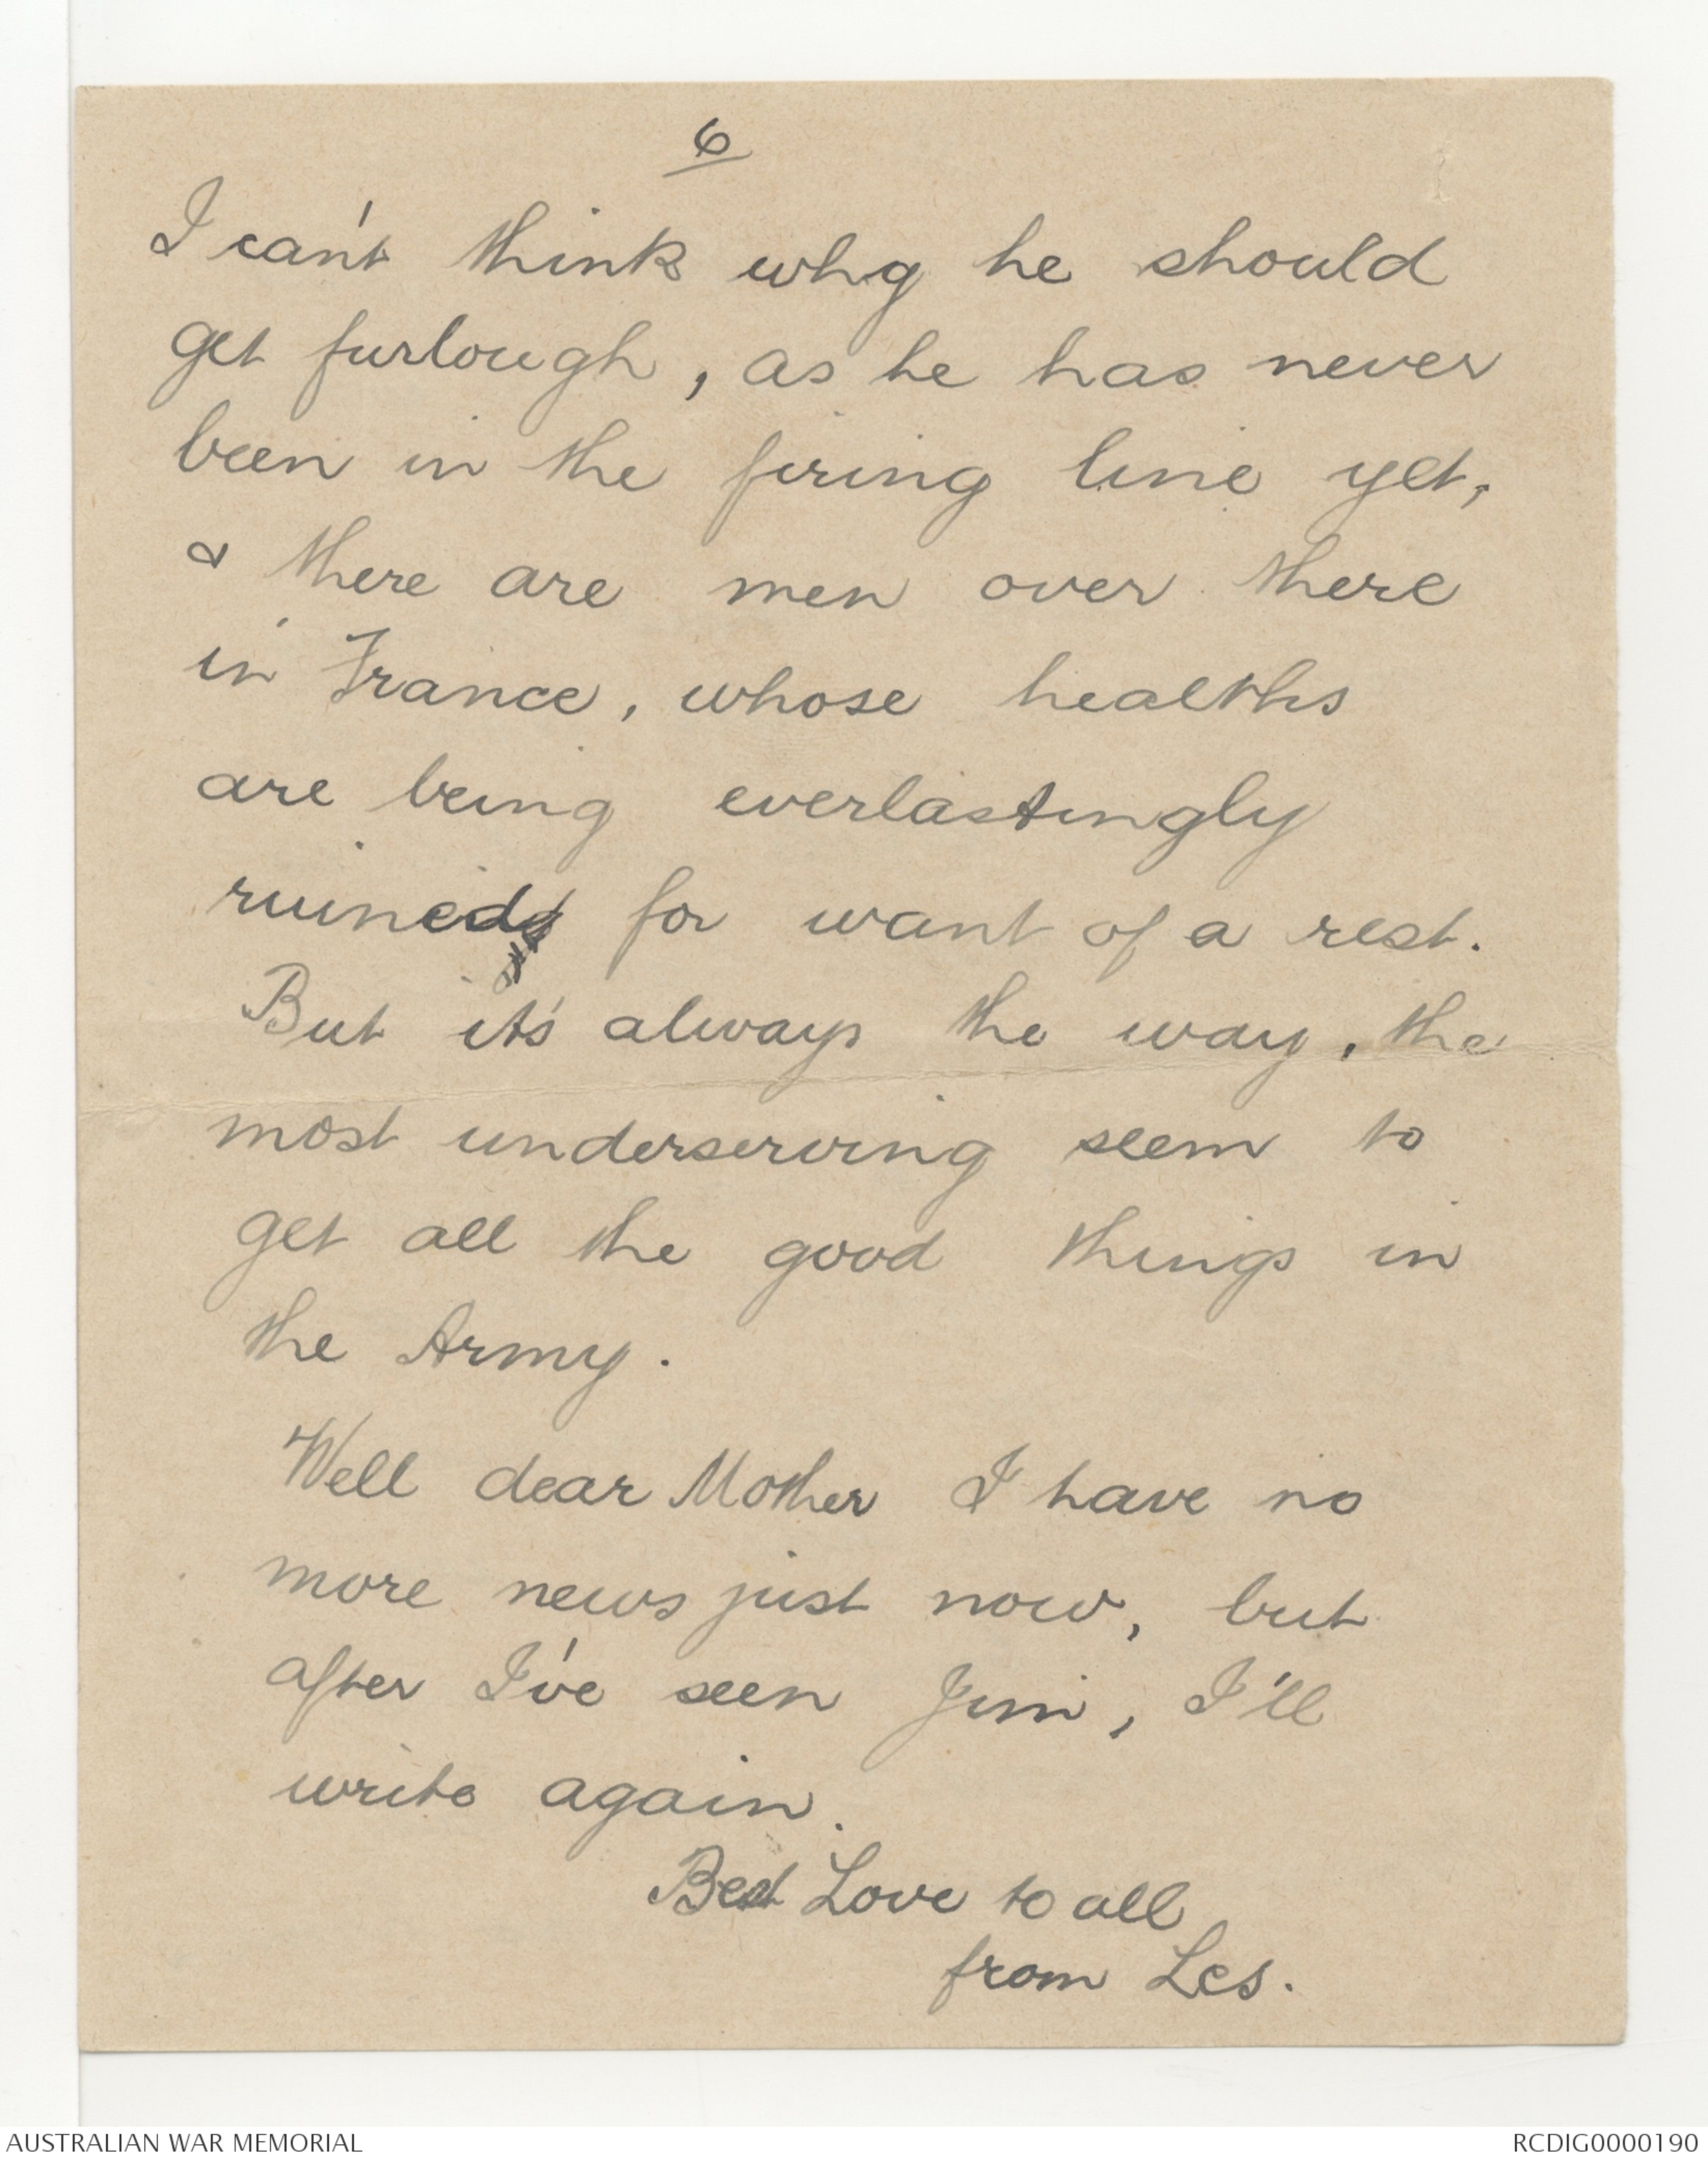 6
I can't think why he should
get furlough, as he has never
been in the firing line yet,
& there are men over there
in France, whose healths
are being everlastingly
ruined for want of a rest.
But it's always the way, the
most underserving seem to
get all the good things in
the Army.
Well dear Mother I have no
more news just now, but
after I've seen Jim, I'll
write again.
Best Love to all
from Les.
AUSTRALIAN WAR MEMORIAL
RCDIG0000190